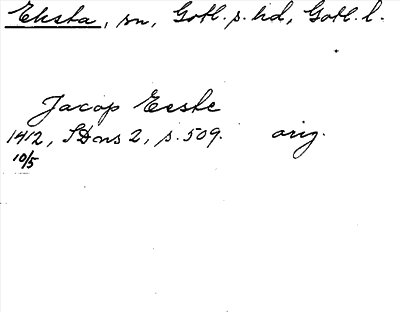 Eksta, sn, Gotl. s. hd, Gotl. l.
Jacop Eeste
1412, SDns 2, s. 509. orig.
10/5